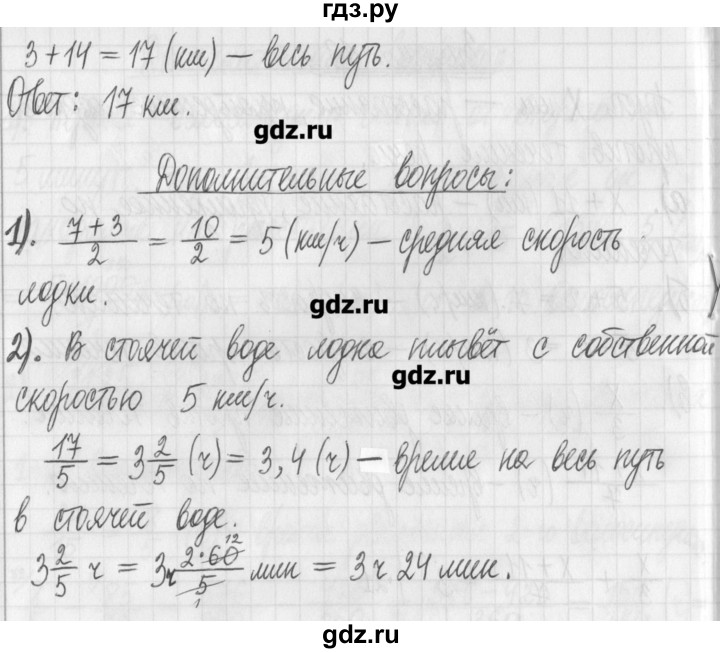 гдз.ру
3 + 14 = 17 (км) — весь путь.
Ответ: 17 км.
gdz.ru
Дополнительные вопросы:
1). (7 + 3)/2 = 10/2 = 5 (км/ч) — средняя скорость
лодки.
gdz.ru
2). В стоячей воде лодка плывёт с собственной
gdz.ru
скоростью 5 км/ч.
17/5 = 3 2/5 (ч) = 3,4 (ч) — время на весь путь
в стоячей воде.
3 2/5 ч = 3ч (2·60)/5 мин = 3ч 24 мин.
gdz.ru